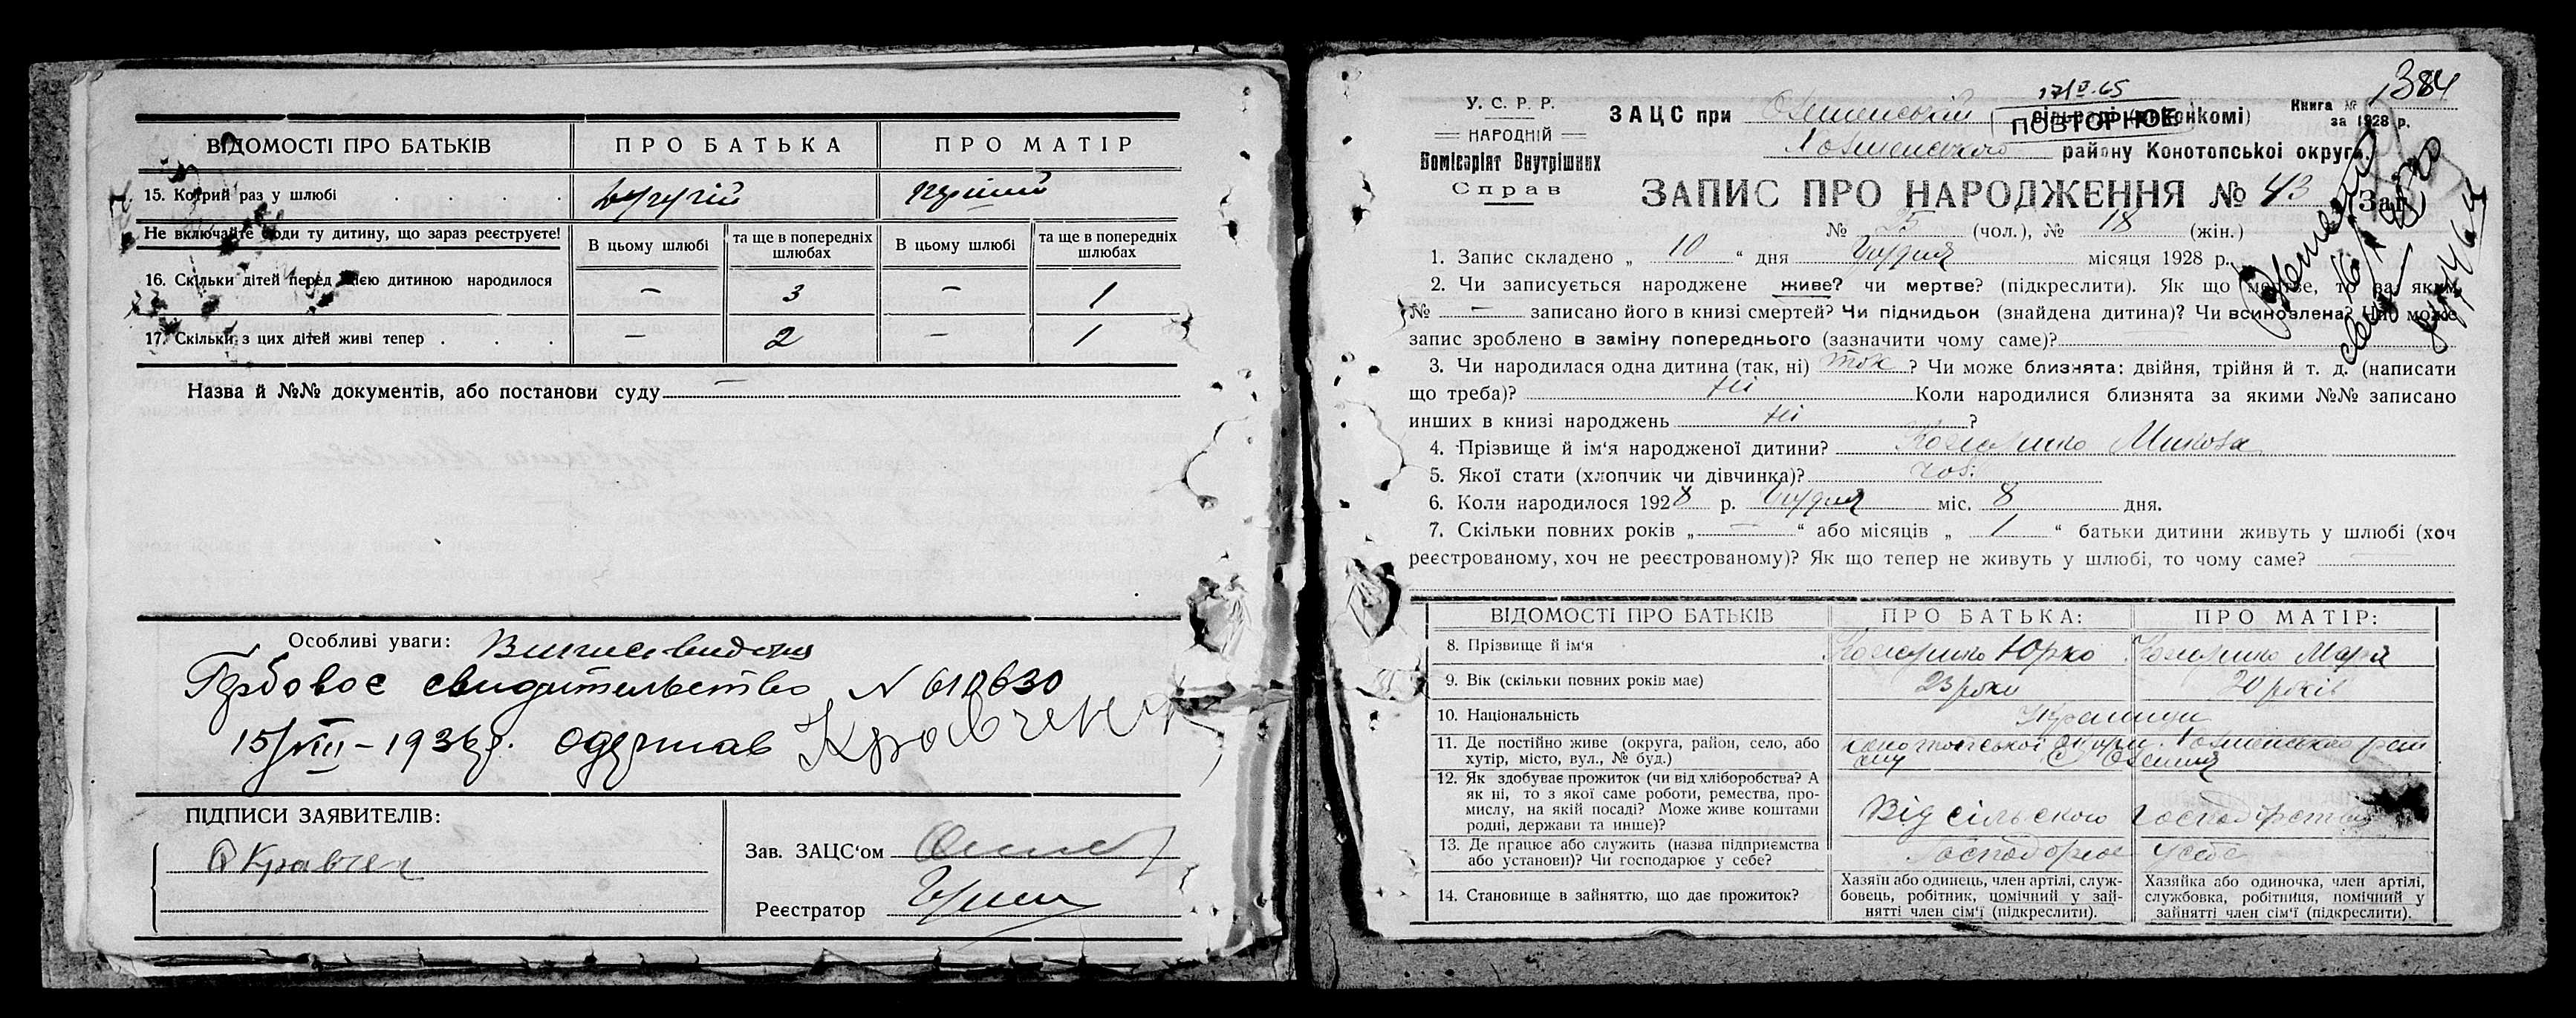 ВІДОМОСТІ ПРО БАТЬКІВ ПРО БАТЬКА ПРО МАТІР
15. Котрий раз у шлюбі . . . другий перший
Не включайте сюди ту дитину, що зараз реєструєте! В цьому шлюбі та ще в попередніх шлюбах В цьому шлюбі та ще в попередніх шлюбах
16. Скільки дітей перед цією дитиною народилося – 3 – 1
17. Скільки з цих дітей живі тепер . . . – 2 – 1
Назва й №№ документів, або постанови суду –
Особливі уваги:
Гербовое свидительство N 610630
15/VIII – 1936 р. одержав Кравченк
ПІДПИСИ ЗАЯВИТЕЛІВ:
Кравчен
Зав. ЗАЦС‘ом
Реєстратор
17/V-65
1384
У. С. Р. Р.
НАРОДНІЙ
Комісаріят Внутрішних
Справ
ЗАЦС при сільраді (виконкомі)
ПОВТОРНОЕ
Книга №
за 1928 р.
району Конотопської округи.
ЗАПИС ПРО НАРОДЖЕННЯ № 43 Заг.
№ 25 (чол.), № 18 (жін.)
1. Запис складено „ 10 “ дня Грудня місяця 1928 р.
2. Чи записується народжене живе? чи мертве? (підкреслити). Як що мертве, то за яким
№ – записано його в книзі смертей? Чи підкидьок (знайдена дитина)? Чи всиновлена? Чи може
запис зроблено в заміну попереднього (зазначити чому саме)?
3. Чи народилася одна дитина (так, ні) так ? Чи може близнята: двійня, трійня й т. д. (написати
що треба)? Ні Коли народилися близнята за якими №№ записано
инших в книзі народжень Ні ?
4. Прізвище й ім‘я народженої дитини? Микола
5. Якої стати (хлопчик чи дівчинка)? чол.
6. Коли народилося 1928 р. Грудня міс. 8 дня.
7. Скільки повних років „ – “ або місяців „ 1 “ батьки дитини живуть у шлюбі (хоч
реєстрованому, хоч не реєстрованому)? Як що тепер не живуть у шлюбі, то чому саме?
ВІДОМОСТІ ПРО БАТЬКІВ ПРО БАТЬКА: ПРО МАТІР:
8. Прізвище й ім‘я Юрко Марія
9. Вік (скільки повних років має) 23 роки 20 років
10. Національність Українци
11. Де постійно живе (округа, район, село, або
хутір, місто, вул., № буд.) Конотопської округи
12. Як здобуває прожиток (чи від хліборобства? А
як ні, то з якої саме роботи, ремества, про-
мислу, на якій посаді? Може живе коштами
родні, держави та инше)? Від сільского господарства
13. Де працює або служить (назва підприємства
або установи)? Чи господарює у себе? Господарює у себе
14. Становище в зайняттю, що дає прожиток?
Хазяїн або одинець, член артілі, служ-
бовець, робітник, помічний у зай-
нятті член сім‘ї (підкреслити).
Хазяйка або одиночка, член артілі,
службовка, робітниця, помічний у
зайнятті член сім‘ї (підкреслити).